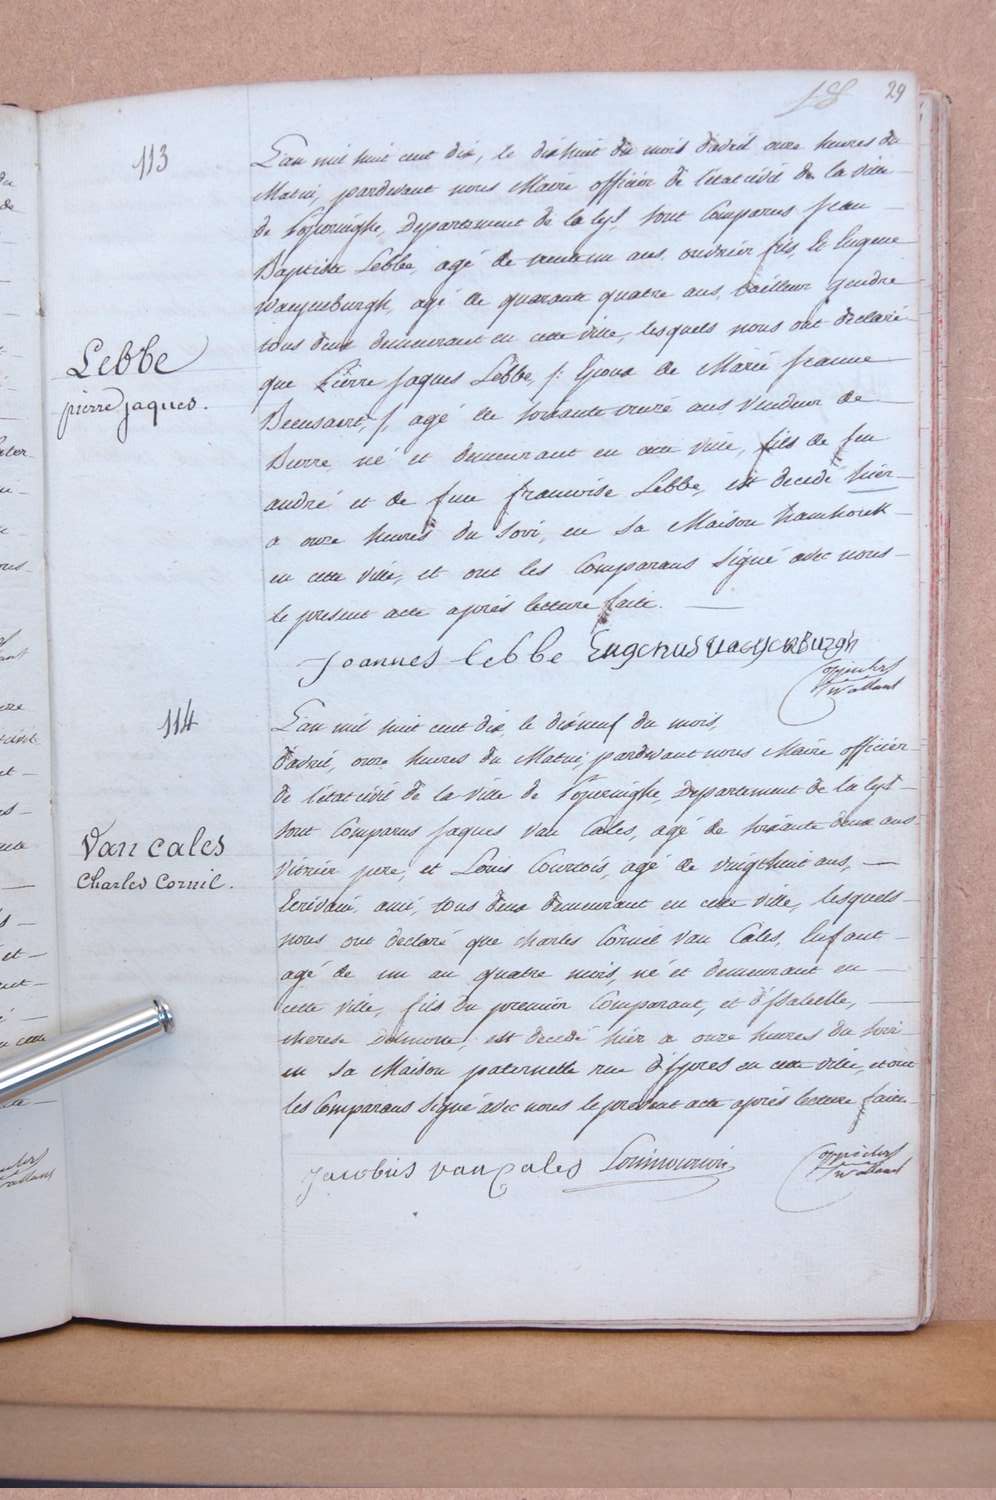 29
18
113
L'an mil huit cent dix, le dixhuit du mois d'avril onze heures du
Matin, pardevant nous Maire officier de l'état civil de la ville
de Poperinghe, Departement de la Lys, sont Comparus Jean
Baptiste Lebbe, agé de trente un ans, ouvrier fils, Et Eugene
Waeyenburgh, agé de quarante quatre ans, tailleur gendre
tous deux demeurant en cette ville, lesquels nous ont declaré
Lebbe
pierre jaques.
que Pierre Jaques Lebbe, /: Epoux de Marie Jeanne
agé de soixante ans vendeur de
Beurre, né et demeurant en cette ville, fils de feu
andré et de feue francoise Lebbe, est decedé hier
a onze heures du soir, en sa Maison
en cette ville, et ont les Comparans signé avec nous
le present acte après lecture faite.
Joannes Lebbe Eugenus Vaeyenburgh
114
L'an mil huit cent dix, le dixneuf du mois,
d'avril, onze heures du Matin, pardevant nous Maire officier
de l'état civil de la ville de Poperinghe, Departement de la Lys
sont Comparus Jaques Van Cales, agé de soixante deux ans
Van cales
Charles Cornil.
Vitrier pere, et Louis Courtois, agé de vingthuit ans,
Ecrivain, ami, tous deux demeurant en cette ville, lesquels
nous ont declaré que Charles Cornil Van Cales, Enfant
agé de un an quatre mois, né et demeurant en
cette ville, fils du premier Comparant, et d'Isabelle,
therese est decedé hier a onze heures du soir
en sa Maison paternelle rue d'Ypres en cette ville, et ont
les Comparans signé avec nous le present acte après lecture faite
Jacobus van Cales